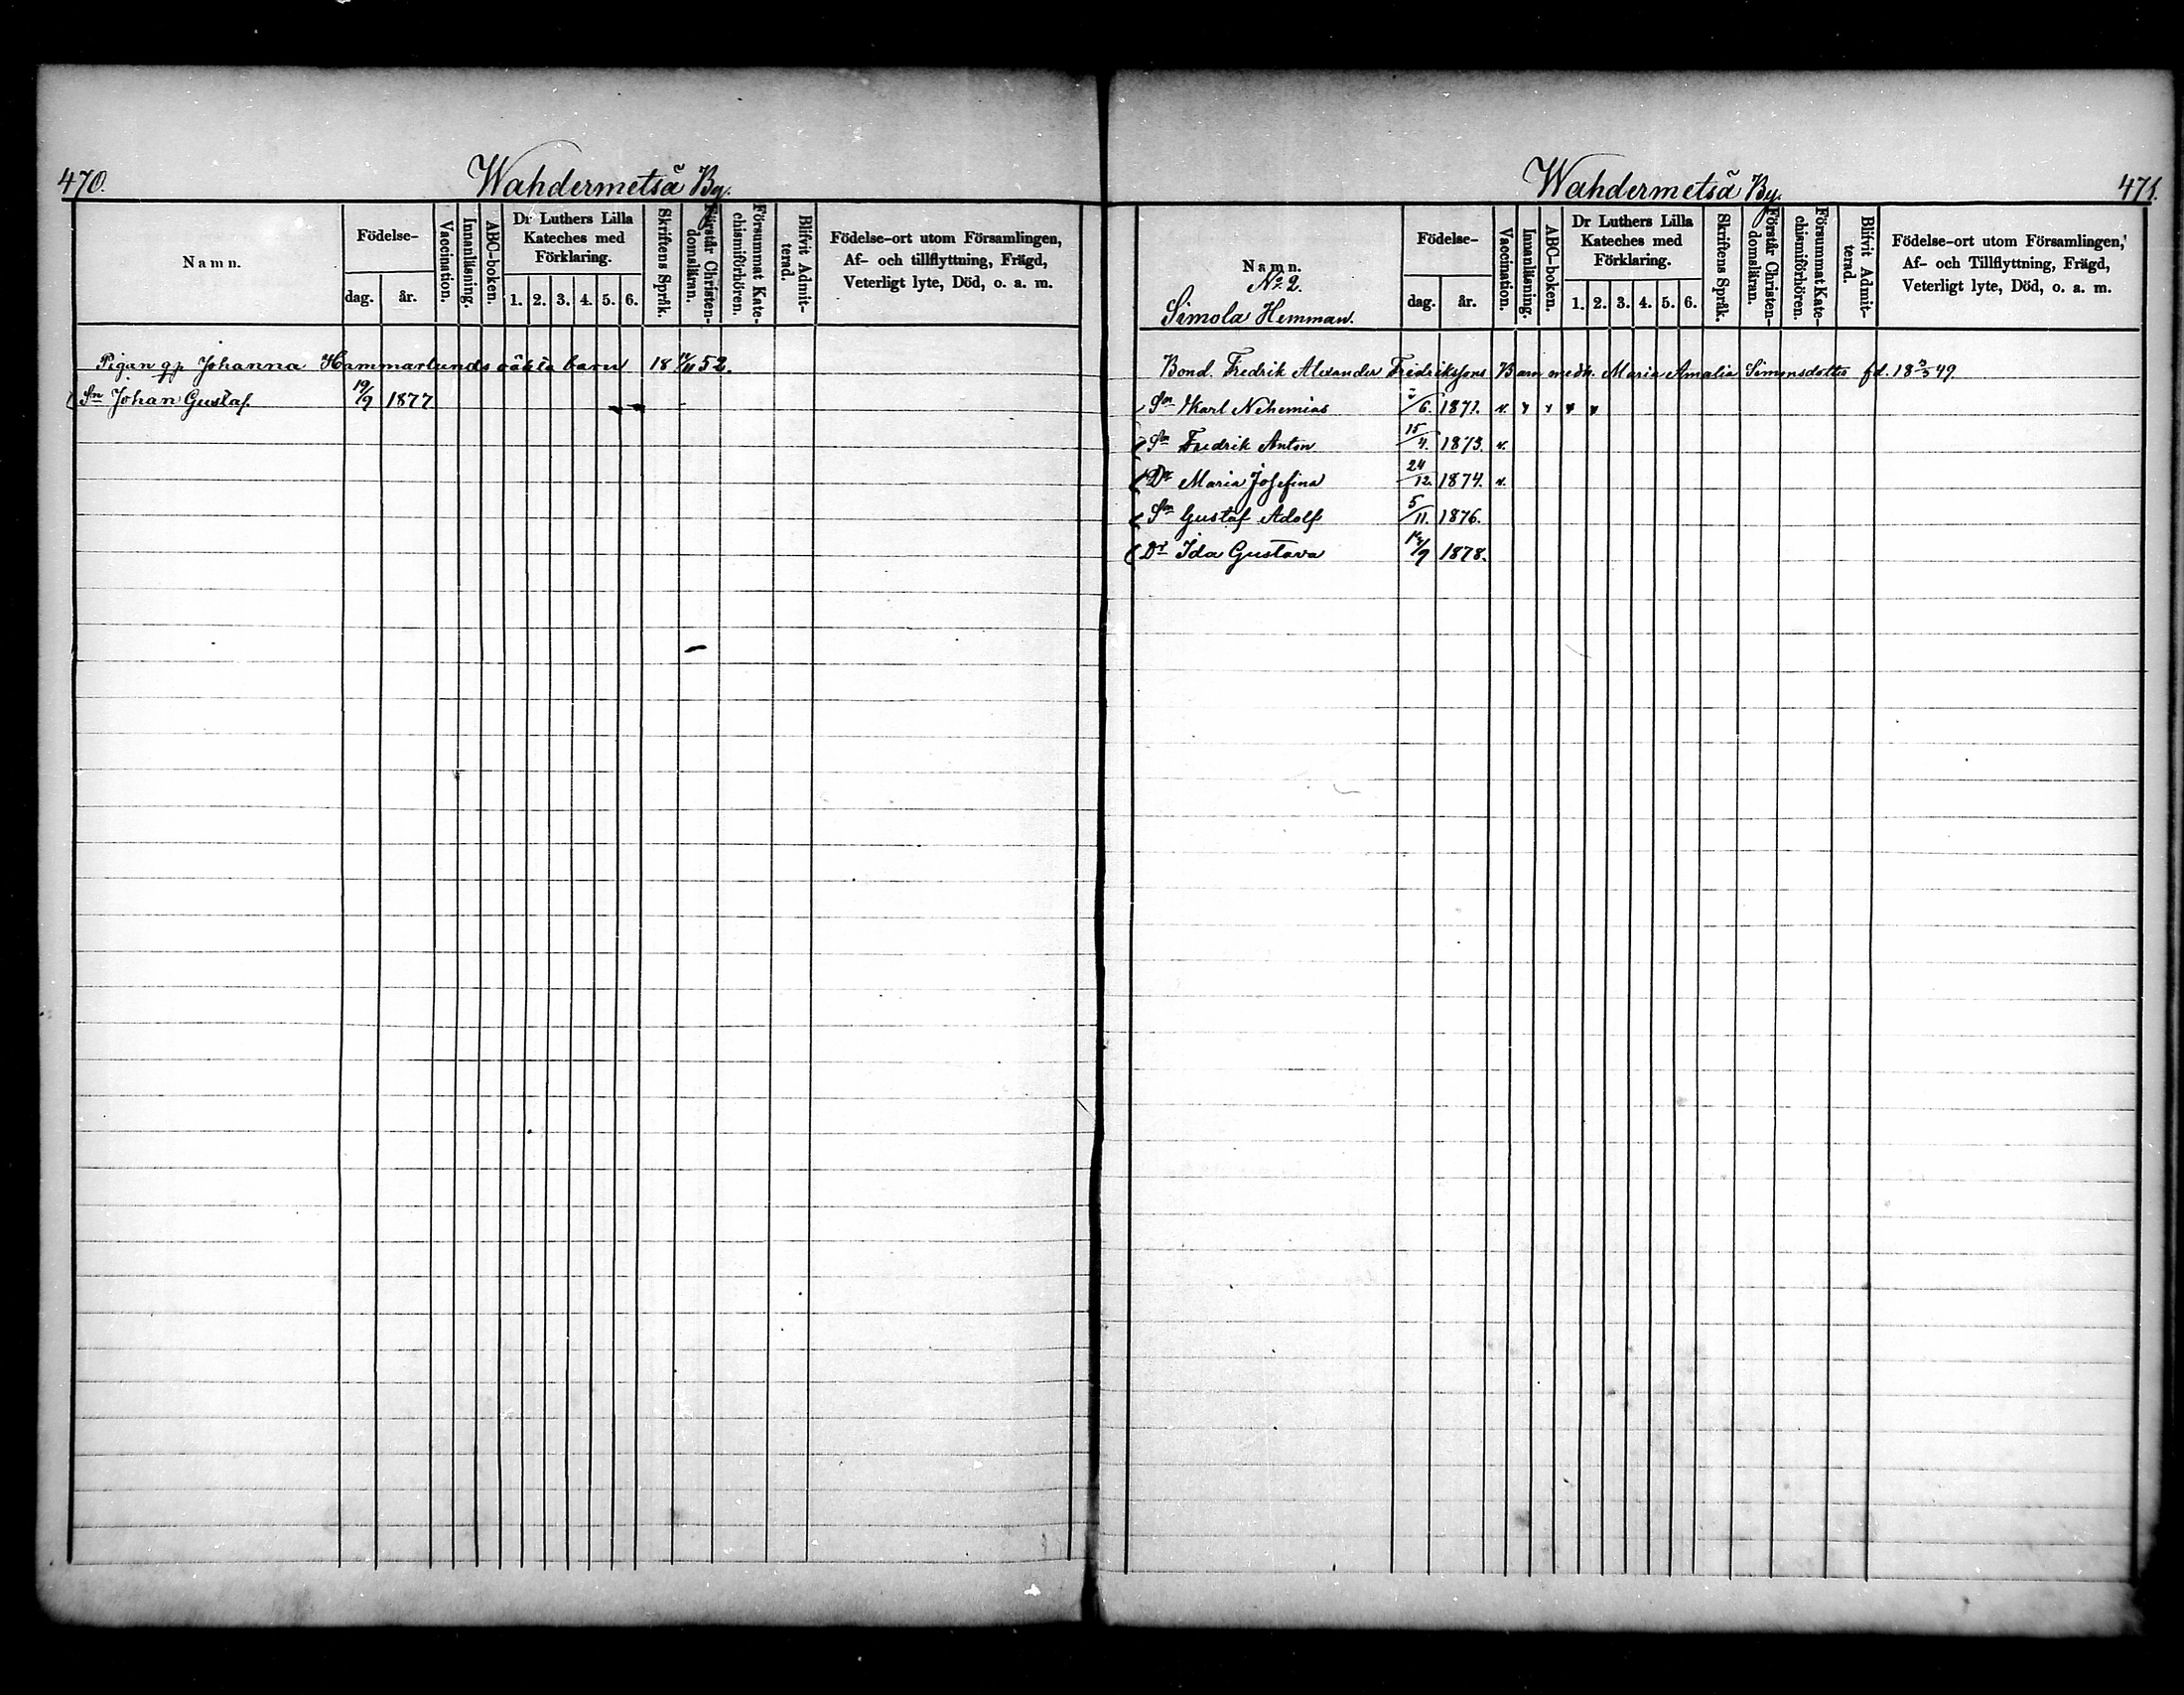 470.
Wahdermetsä By.
Namn.
Födelse-
dag.
år.
Vaccination.
Innanläsning.
ABC-boken.
Dr Luthers Lilla
Kateches med
Förklaring.
1. 2. 3. 4. 5. 6.
Skriftens Språk.
Förstår Christen-
domsläran.
Försummat Kate-
chismiförhören.
Blifvit Admit-
terad.
Födelse-ort utom Församlingen,
Af- och tillflyttning, Frägd,
Veterligt lyte, Död, o. a. m.
Pigan gp Johanna Hammarlunds oäkta barn 18 /11 52.
Sn Johan Gustaf. 19/9 1877
Wahdermetsä By.
471.
Namn.
No 2.
Simola Hemman.
Födelse-
dag.
år.
Vaccination.
Innanläsning.
ABC-boken.
Dr Luthers Lilla
Kateches med
Förklaring.
1. 2. 3. 4. 5. 6.
Skriftens Språk.
Förstår Christen-
domsläran.
Försummat Kate-
chismiförhören.
Blifvit Admit-
terad.
Födelse-ort utom Församlingen,
Af- och Tillflyttning, Frägd,
Veterligt lyte, Död, o. a. m.
Bond. Fredrik Alexander Fredrikssons Barn med h. Maria Amalia Simonsdotter fd. 18 /5 49
Sn Karl Nehemias /6. 1871. v.
Sn Fredrik Anton 15/4. 1873. v.
Dr Maria Josefina 24/12. 1874. v.
Sn Gustaf Adolf 5/11. 1876.
Dr Ida Gustava /9 1878.